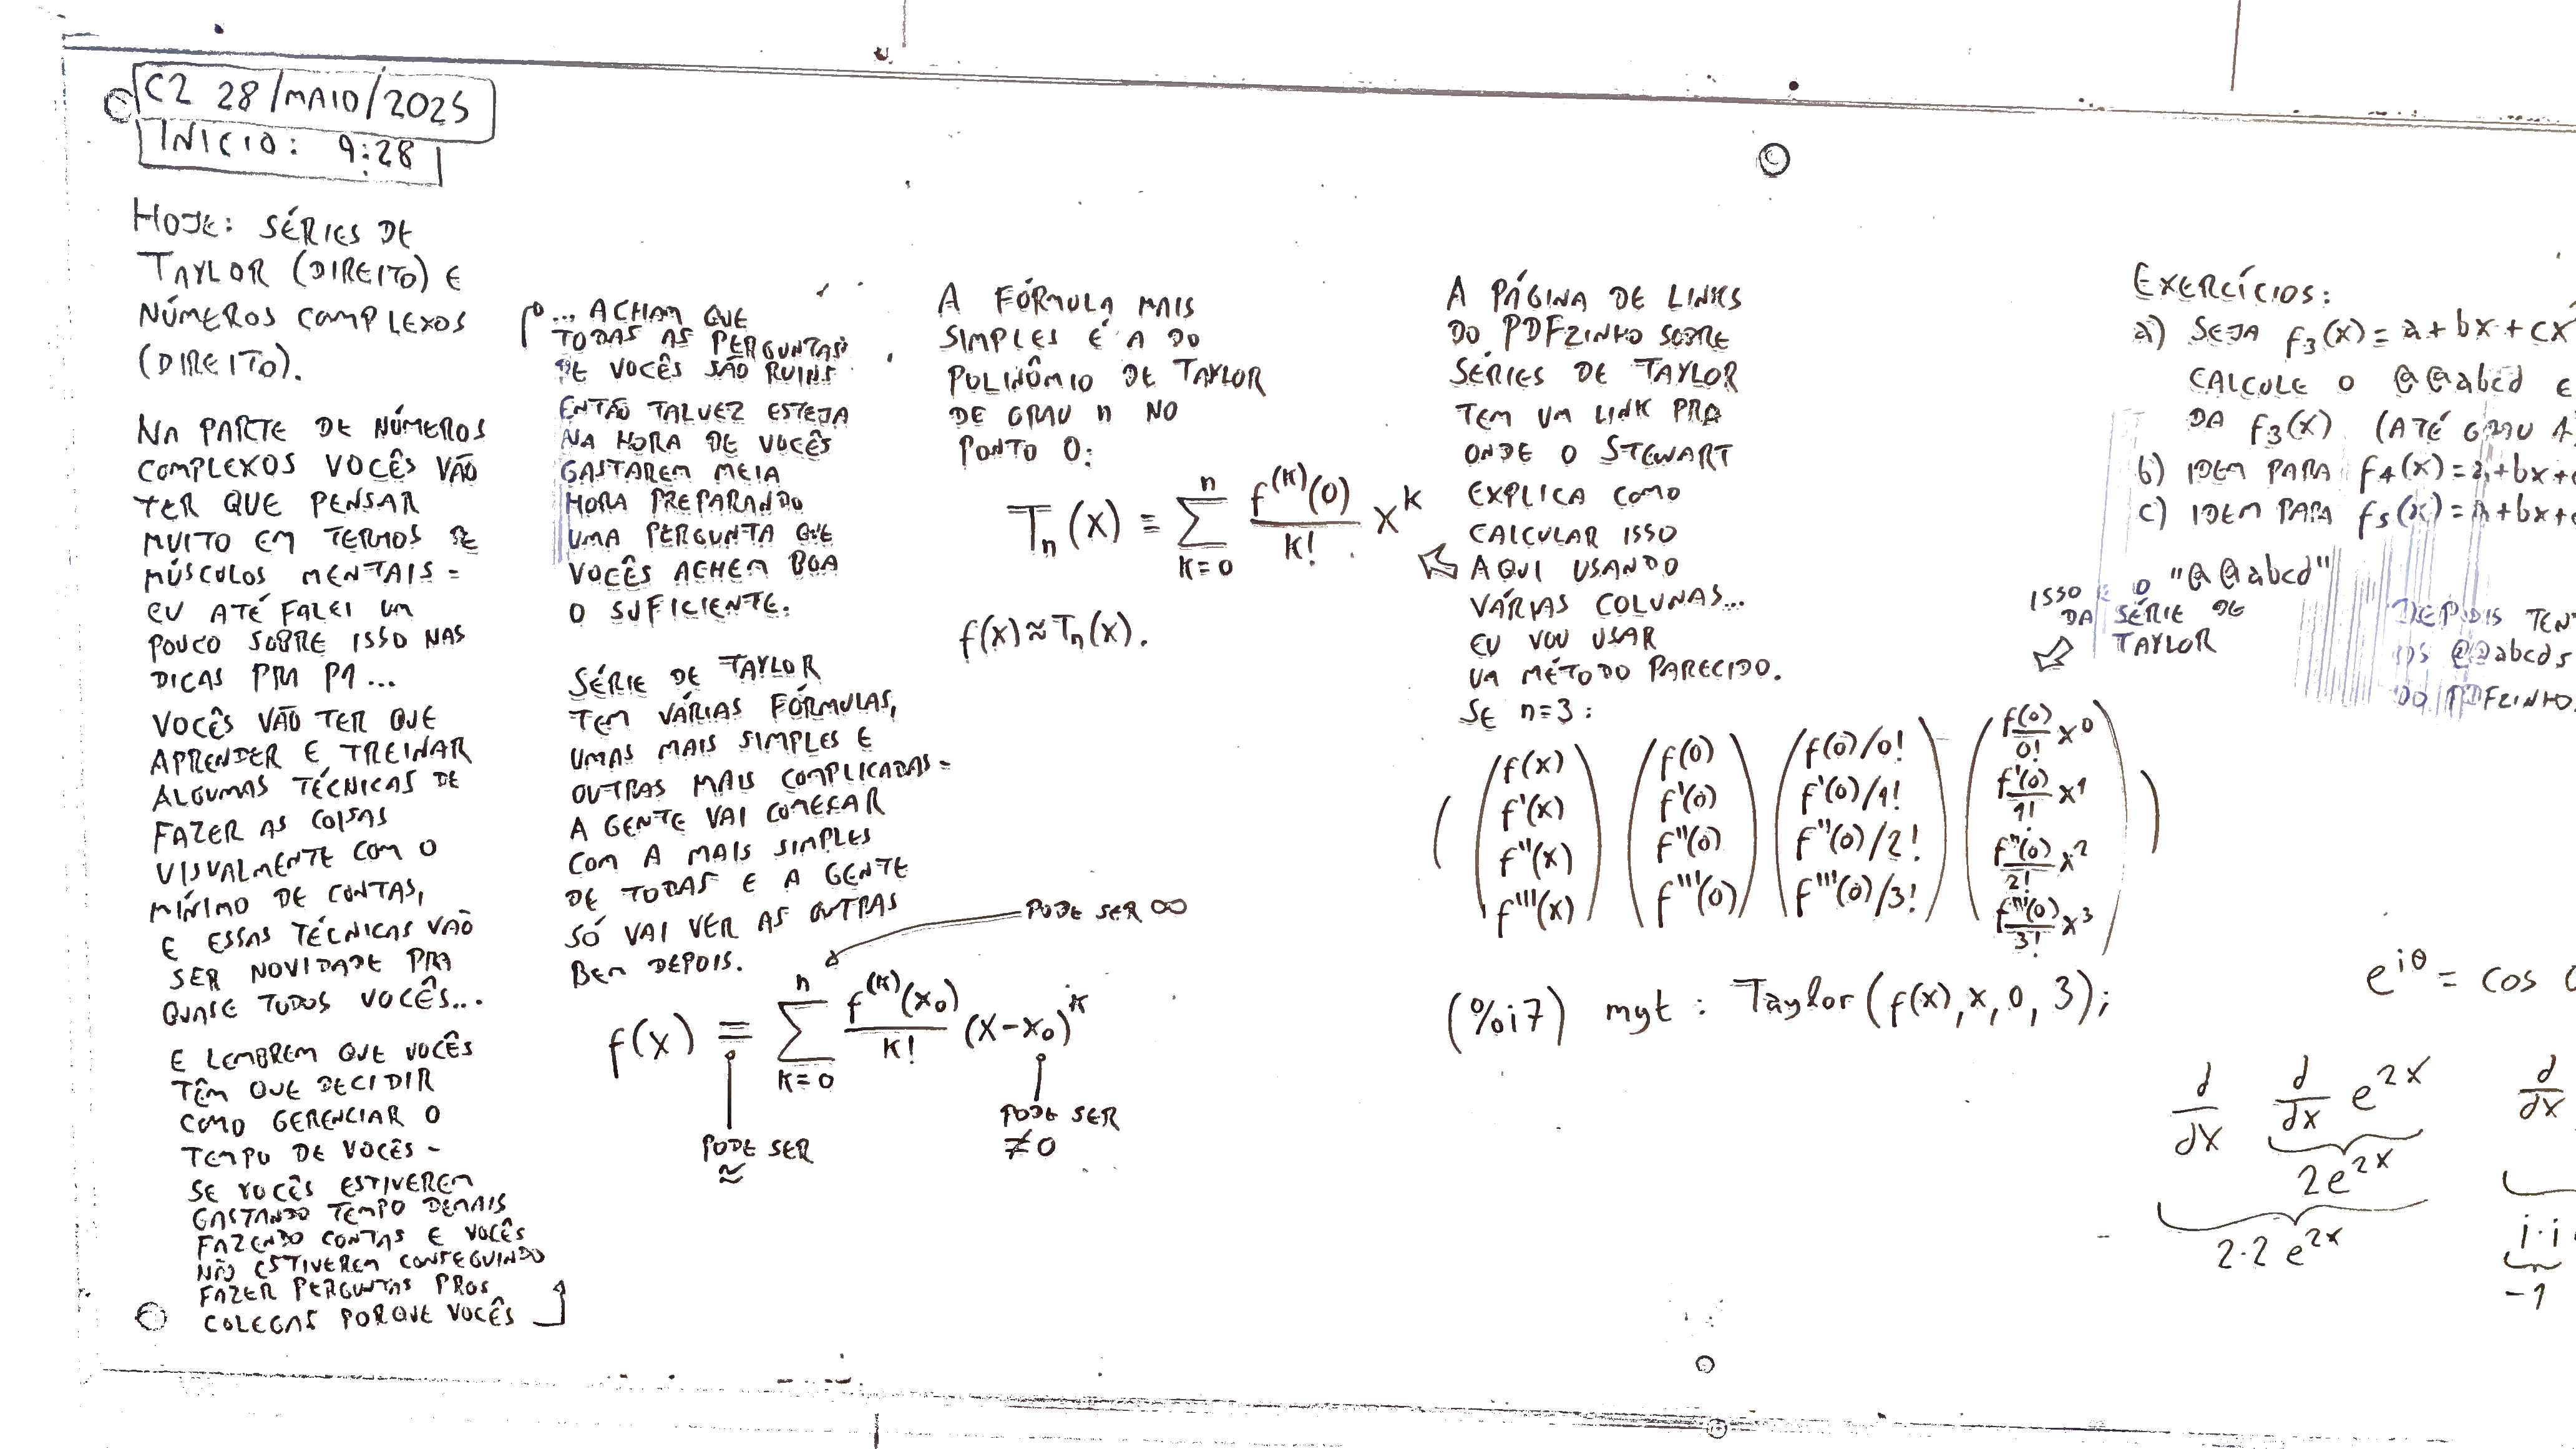 C2 28/MAIO/2025
INÍCIO: 9:28
HOJE: SÉRIES DE
TAYLOR (DIREITO) E
NÚMEROS COMPLEXOS
(DIREITO).
NA PARTE DE NÚMEROS
COMPLEXOS VOCÊS VÃO
TER QUE PENSAR
MUITO EM TERMOS DE
MÚSCULOS MENTAIS -
EU ATÉ FALEI UM
POUCO SOBRE ISSO NAS
DICAS PRA P1...
VOCÊS VÃO TER QUE
APRENDER E TREINAR
ALGUMAS TÉCNICAS DE
FAZER AS COISAS
VISUALMENTE COM O
MÍNIMO DE CONTAS,
E ESSAS TÉCNICAS VÃO
SER NOVIDADE PRA
QUASE TODOS VOCÊS...
E LEMBREM QUE VOCÊS
TÊM QUE DECIDIR
COMO GERENCIAR O
TEMPO DE VOCÊS -
SE VOCÊS ESTIVEREM
GASTANDO TEMPO DEMAIS
FAZENDO CONTAS E VOCÊS
NÃO ESTIVEREM CONSEGUINDO
FAZER PERGUNTAS PROS
COLEGAS PORQUE VOCÊS
... ACHAM QUE
TODAS AS PERGUNTAS
DE VOCÊS SÃO RUINS
ENTÃO TALVEZ ESTEJA
NA HORA DE VOCÊS
GASTAREM MEIA
HORA PREPARANDO
UMA PERGUNTA QUE
VOCÊS ACHEM BOA
O SUFICIENTE.
SÉRIE DE TAYLOR
TEM VÁRIAS FÓRMULAS,
UMAS MAIS SIMPLES E
OUTRAS MAIS COMPLICADAS -
A GENTE VAI COMEÇAR
COM A MAIS SIMPLES
DE TODAS E A GENTE
SÓ VAI VER AS OUTRAS
BEM DEPOIS.
PODE SER ∞
f(x) = ∑_{k=0}^{n} f^{(k)}(x₀)/k! (x-x₀)^k
PODE SER
≈
PODE SER
≠0
A FÓRMULA MAIS
SIMPLES É A DO
POLINÔMIO DE TAYLOR
DE GRAU n NO
PONTO 0:
T_n(x) = ∑_{k=0}^{n} f^{(k)}(0)/k! x^k
f(x) ≈ T_n(x).
A PÁGINA DE LINKS
DO PDFZINHO SOBRE
SÉRIES DE TAYLOR
TEM UM LINK PRA
ONDE O STEWART
EXPLICA COMO
CALCULAR ISSO
AQUI USANDO
VÁRIAS COLUNAS...
EU VOU USAR
UM MÉTODO PARECIDO.
SE n=3:
f(x) f(0) f(0)/0! f(0)/0! x^0
f'(x) f'(0) f'(0)/1! f'(0)/1! x^1
f''(x) f''(0) f''(0)/2! f''(0)/2! x^2
f'''(x) f'''(0) f'''(0)/3! f'''(0)/3! x^3
(%i7) myt : Taylor(f(x),x,0,3);
EXERCÍCIOS:
a) SEJA f₃(x)=a+bx+cx
CALCULE O @@abcd E
DA f₃(x) (ATÉ GRAU 4
b) IDEM PARA f₄(x)=a+bx+
c) IDEM PARA f₅(x)=a+bx+
ISSO É O "@@abcd"
DA SÉRIE DE
TAYLOR
DEPOIS
OS @@abcds
DO PDFZINHO.
e^{iθ} = cos
d/dx d/dx e^{2x}
2e^{2x}
2·2 e^{2x}
d/dx
i·i
-1